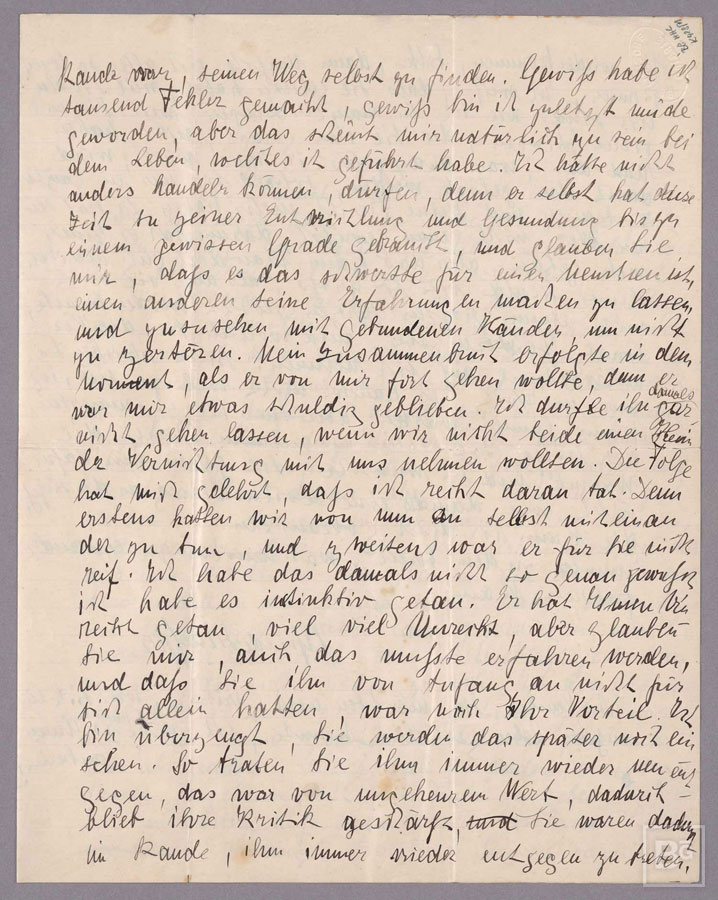 stande war, seinen Weg selbst zu finden. Gewiss habe ich
tausend Fehler gemacht, gewiss bin ich zuletzt müde
geworden, aber das scheint mir natürlich zu sein bei
dem Leben, welches ich geführt habe. Ich hätte nicht
anders handeln können, dürfen, denn er selbst hat diese
Zeit zu seiner Entwicklung und Gesundung bis zu
einem gewissen Grade gebraucht, und glauben Sie
mir, dass es das schwerste für einen Menschen ist,
einen anderen seine Erfahrungen machen zu lassen
und zuzusehen mit gebundenen Händen, um nicht
zu zerstören. Mein Zusammenbruch erfolgte in dem
Moment, als er von mir fort gehen wollte, denn er
war mir etwas schuldig geblieben. Ich durfte ihn damals gar
nicht gehen lassen, wenn wir nicht beide einen Keim
der Vernichtung mit uns nehmen wollten. Die Folge
hat mich gelehrt, dass ich recht daran tat. Denn
erstens hatten wir von nun an selbst mit einan
der zu tun, und zweitens war er für Sie nicht
reif. Ich habe das damals nicht so genau gewusst
ich habe es instinktiv getan. Er hat Ihnen Un
recht getan, viel viel Unrecht, aber glauben
Sie mir, auch das musste erfahren werden,
und dass Sie ihn von Anfang an nicht für
sich allein hatten, war noch Ihr Vorteil. Ich
bin überzeugt, Sie werden das später noch ein
sehen. So traten Sie ihm immer wieder neu ent
gegen, das war von ungeheurem Wert, dadurch
blieb ihre Kritik geschärft, und Sie waren dadurch
im stande, ihm immer wieder entgegen zu treten,
BG